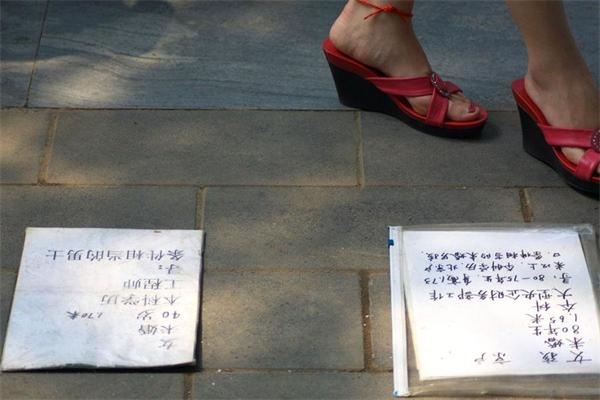 女
未婚
40岁 1.70米
本科学历
工程师
寻:
条件相当的男士
女孩 京户
未婚
80年生
1.65米
本科
大型央企财务部工作
寻:80-75年生 身高1.73
米以上 本科学历 北京户
口.条件相当的未婚男孩.